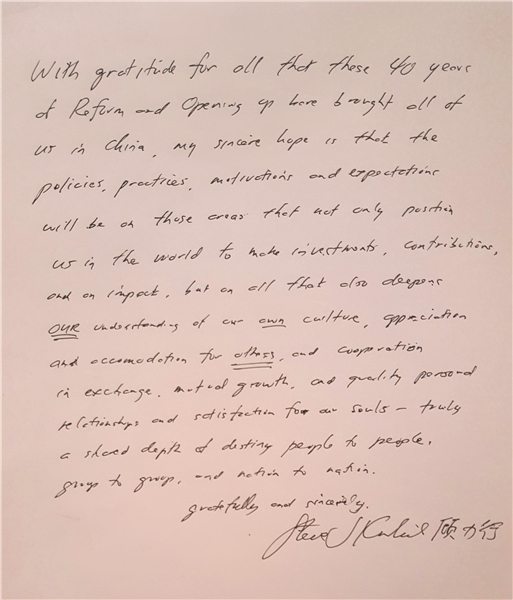 With gratitude for all that these 40 years
of Reform and Opening up have brought all of
us in China, my sincere hope is that the
policies, practices, motivations and expectations
will be on those areas that not only position
us in the world to make investments, contributions,
and an impact, but on all that also deepens
OUR understanding of our own culture, appreciation
and accomodation for others, and cooperation
in exchange, mutual growth, and quality personal
relationships and satisfaction for our souls – truly
a shared depth of destiny people to people,
group to group, and nation to nation.
gratefully and sincerely,
Steve